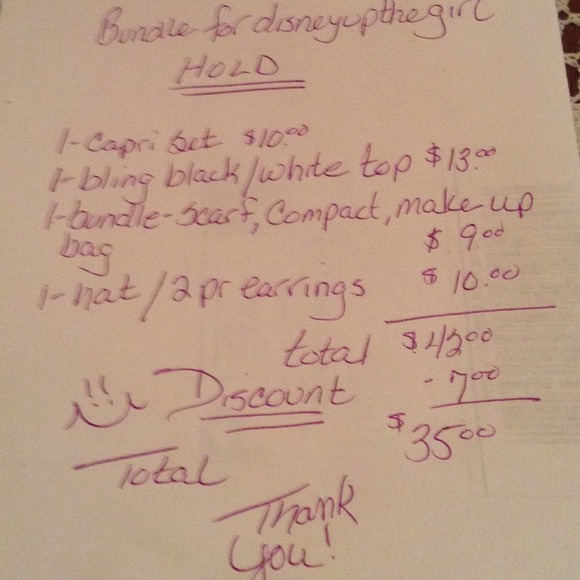 Bundle for disneyupthegirl
HOLD
1-Capri set $10.00
1-bling black/white top $13.00
1-bundle-scarf, Compact, make up
bag $ 9.00
1-hat/2pr earrings $ 10.00
total $42.00
Discount - 7.00
Total $35.00
Thank
You!